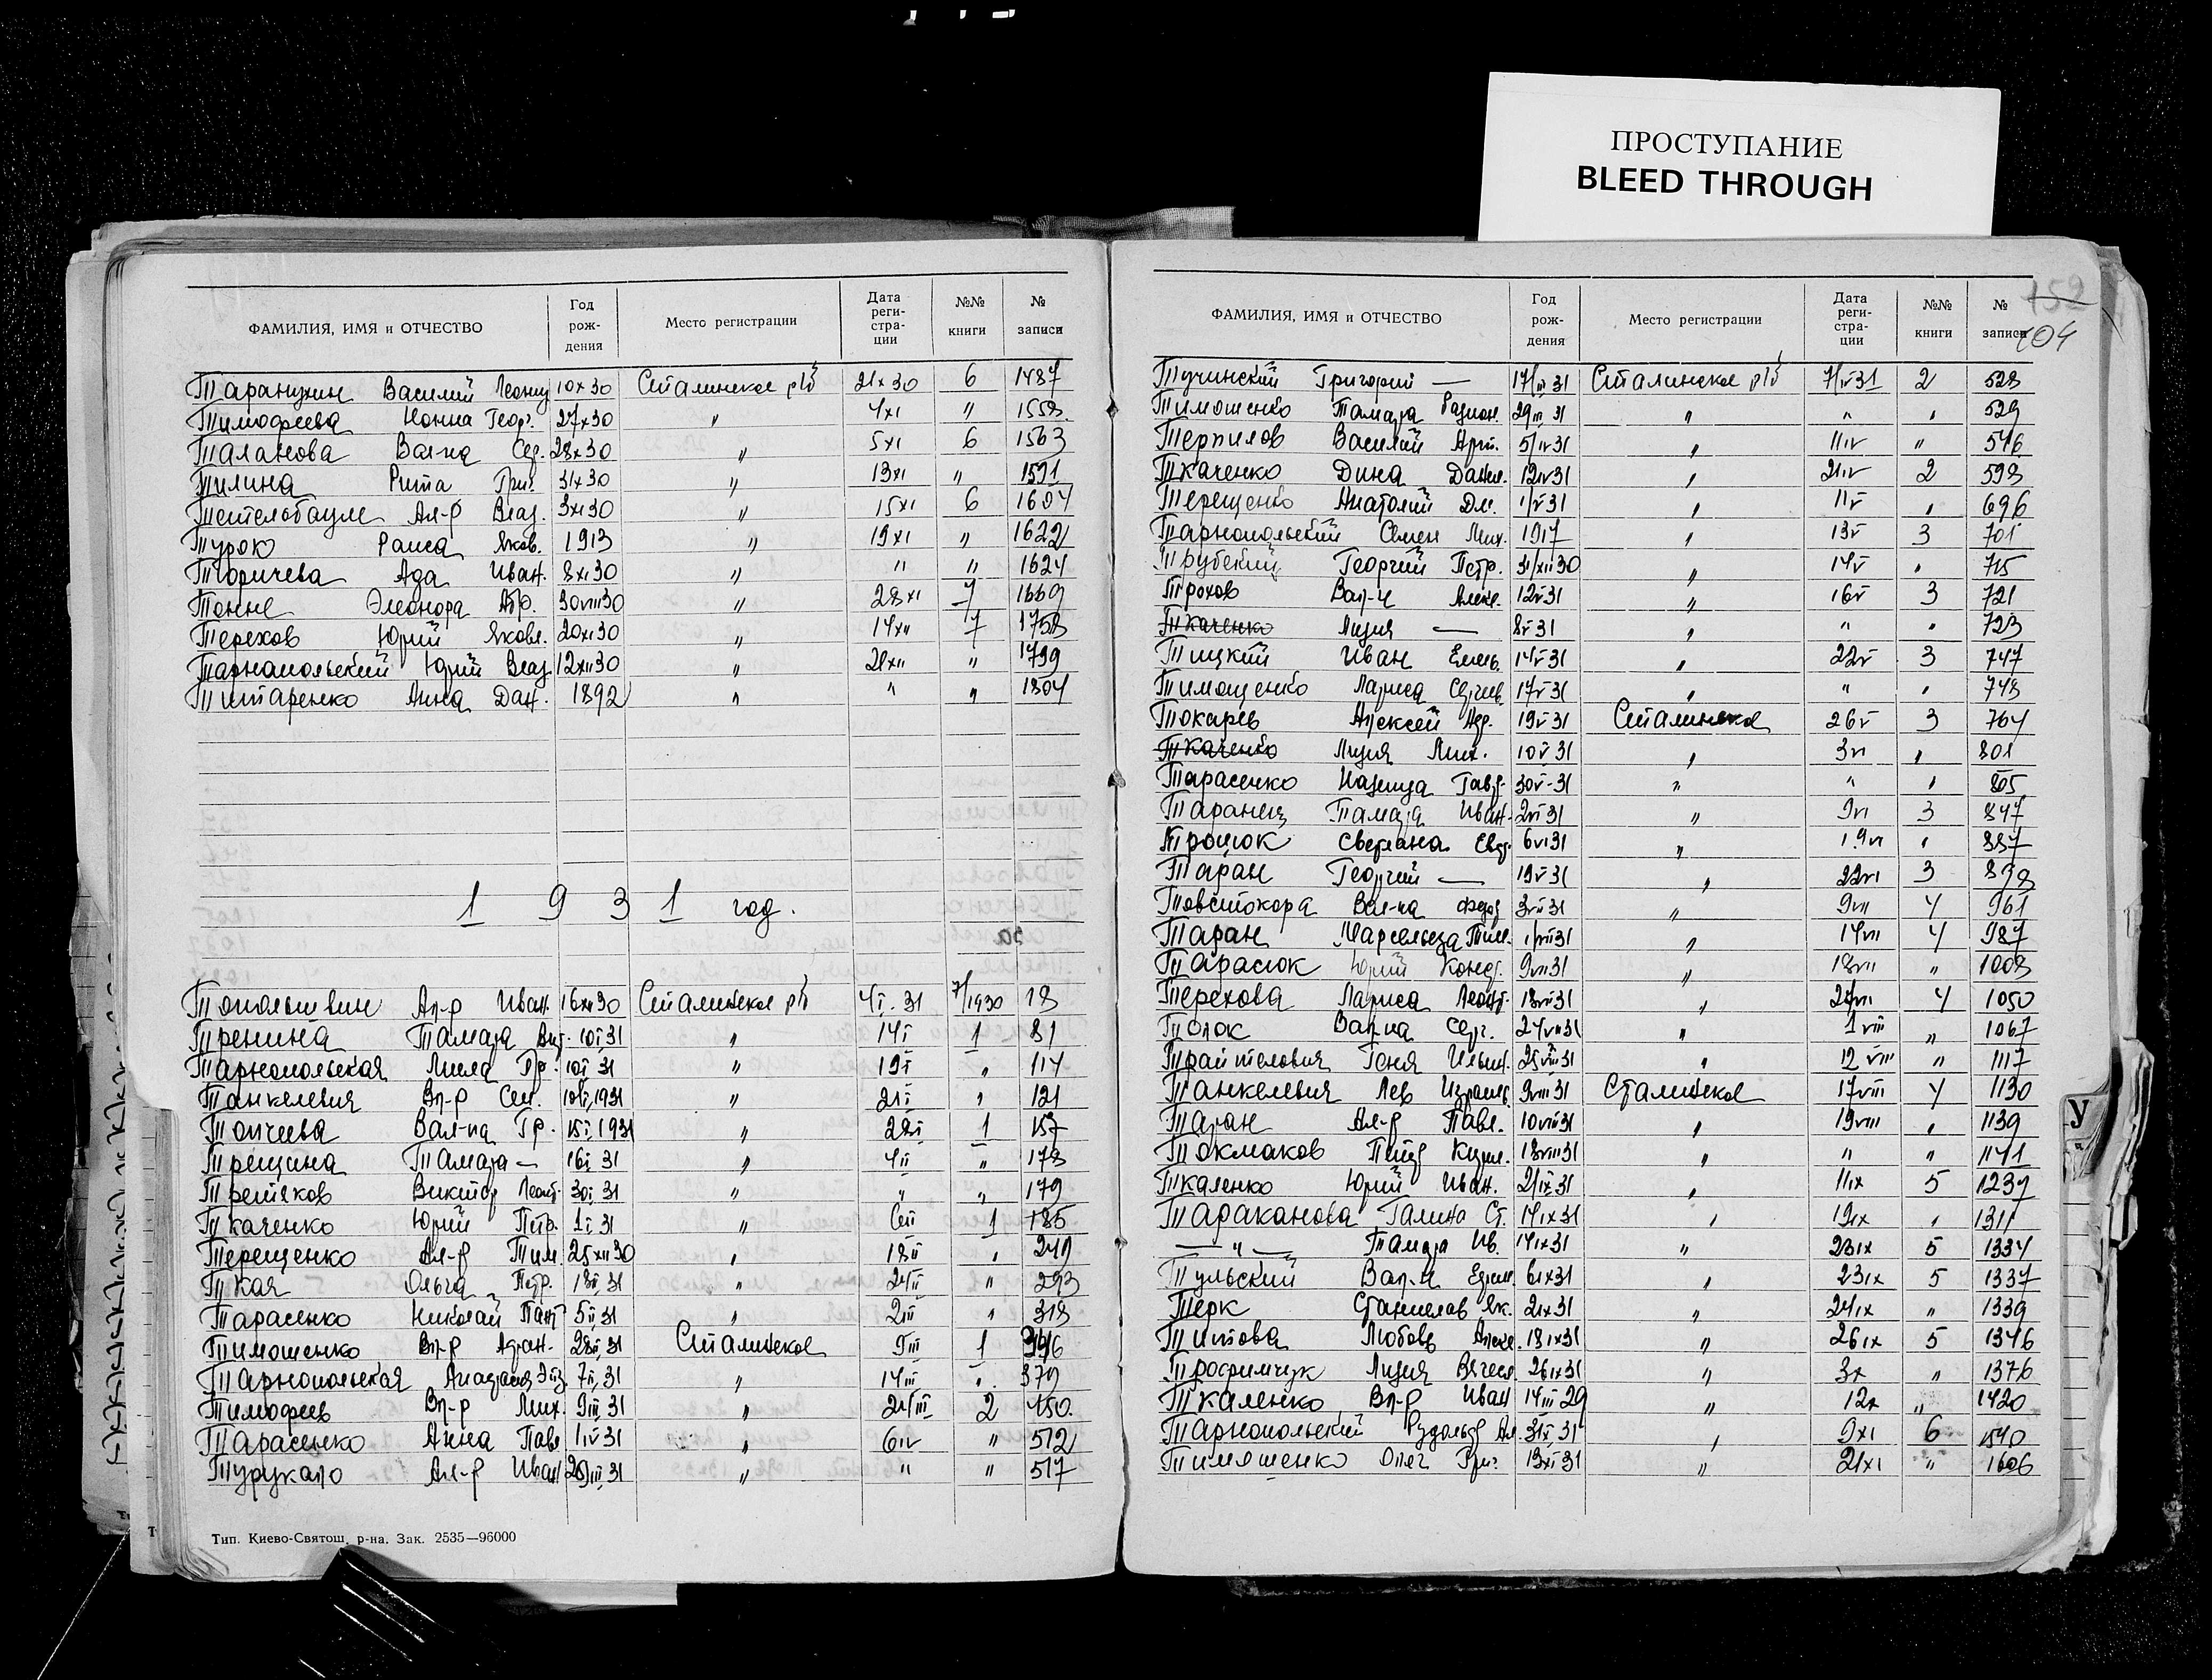 ПРОСТУПАНИЕ
BLEED THROUGH
ФАМИЛИЯ, ИМЯ и ОТЧЕСТВО Год рождения Место регистрации Дата регистрации №№ книги № записи
Таранухин Василий Леони 10 x 30 Сталинское р/б 21 x 30 6 1487
Тимофеева Нонна Геор. 27 x 30 " 4 XI " 1558
Таланова Вал-на Сер. 28 x 30 " 5 XI 6 1563
Тилина Рита Григ. 31 x 30 " 13 XI " 1591
Ал-р Влад. 3 XI 30 " 15 XI 6 1604
Турок Раиса Яков. 1913 " 19 XI " 1622
Торичева Ада Иван. 8 XI 30 " " " 1624
Тенне Элеонора Абр. 30 VIII 30 " 28 XI 7 1669
Терехов Юрий Яковл. 20 XI 30 " 14 XII 7 1758
Тарнопольский Юрий Влад 12 XII 30 " 21 XII " 1799
Титаренко Анна Дан. 1892 " " " 1804
1 9 3 1 год.
Ал-р Иван. 16 XII 30 Сталинское р/б 4 I. 31 7/1930 18
Тренина Тамара Вик. 10 I 31 " 14 I 1 81
Тарнопольская Лиля Гр. 10 I 31 " 19 I " 114
Танкелевич Вл-р Сем. 10 I, 1931 " 21 I " 121
Топчеева Вал-на Гр. 15 I, 1931 " 28 I 1 157
Трещина Тамара — 16 I 31 " 4 II " 178
Третяков Виктор Леонт. 30 I, 31 " " " 179
Ткаченко Юрий Петр. 1 I, 31 " 6 II 1 185
Терещенко Ал-р Тим 25 XII 30 " 18 II " 249
Ткая Ольга Петр. 18 II, 31 " 24 II " 293
Тарасенко Николай Пант 5 II, 31 " 2 III " 318
Тимошенко Вл-р Афан. 28 II, 31 Сталинское 9 III 1
Тарнопольская 7 II, 31 " 14 III " 379
Тимофеев Вл-р Мих. 9 III, 31 " 24 III 2 450
Тарасенко Анна Павл 1 IV 31 " 6 IV " 512
Турукало Ал-р Иван 25 III, 31 " " " 517
Тип. Киево-Святош. р-на. Зак. 2535—96000
152
104
ФАМИЛИЯ, ИМЯ и ОТЧЕСТВО Год рождения Место регистрации Дата регистрации №№ книги № записи
Тучинский Григорий — 17/III 31 Сталинское р/б 7/IV 31 2 528
Тимошенко Тамара 29 III 31 " " " 529
Терпилов Василий Арт. 5/IV 31 " 11 IV " 546
Ткаченко Дина Данил. 12 IV 31 " 21 IV 2 593
Терещенко Анатолий Дм. 1/V 31 " 11 V " 696
Тарнопольский Семен Мих. 1917 " 13 V 3 701
Трубский Георгий Петр. 31/XII 30 " 14 V " 715
Трохов Вал-й Алекс. 12 V 31 " 16 V 3 721
Ткаченко Лидия — 8 V 31 " " " 723
Тицкий Иван Емель. 14 V 31 " 22 V 3 747
Тимощенко Лариса Сергеев 17 V 31 " " " 748
Токарев Алексей Анд. 19 V 31 Сталинское 26 V 3 764
Ткаченко Лидия Мих. 10 V 31 " 3 VI " 801
Тарасенко Надежда Гавр. 30 V - 31 " " " 805
Таранец Тамара Иван. 2 VI 31 " 9 VI 3 847
Троцюк Светлана Евд. 6 VI 31 " 19 VI " 887
Таран Георгий — 19 V 31 " 22 VI 3 898
Товстокора Вал-на Федо 3 VII 31 " 9 VII 4 961
Таран Марсельеза Тим. 1/VII 31 " 14 VII 4 987
Тарасюк Юрий Конд. 9 VII 31 " 18 VII " 1008
Терехова Лариса Леонт. 18 VII 31 " 24 VII 4 1050
Толок Вал-на Серг. 24 VII 31 " 1 VIII " 1067
Геня Ильин. 25 VII 31 " 12 VIII " 1117
Танкелевич Лев Израиль. 9 VIII 31 Сталинское 17 VIII 4 1130
Таран Ал-р Павл. 10 VIII 31 " 19 VIII " 1139
Токмаков Петр Кузм. 18 VIII 31 " " " 1141
Ткаленко Юрий Иван. 2/IX 31 " 11 IX 5 1239
Тараканова Галина Ст. 14 IX 31 " 19 IX " 1311
— " — Тамара Ив. 14 IX 31 " 23 IX 5 1334
Тульский Вал-й Ефим. 6 IX 31 " 23 IX 5 1337
Терк Станислав Як. 2 IX 31 " 24 IX " 1339
Титова Любовь Алекс. 18 IX 31 " 26 IX 5 1346
Трофимчук Лидия Вячесл. 26 IX 31 " 3 X " 1376
Ткаленко Вл-р Иван 14 III 29 " 12 X " 1420
Тарнопольский Рудольф Ал. 31 X, 31 " 9 XI 6 1540
Тимошенко Олег Григ. 13 XI 31 " 21 XI " 1606
У